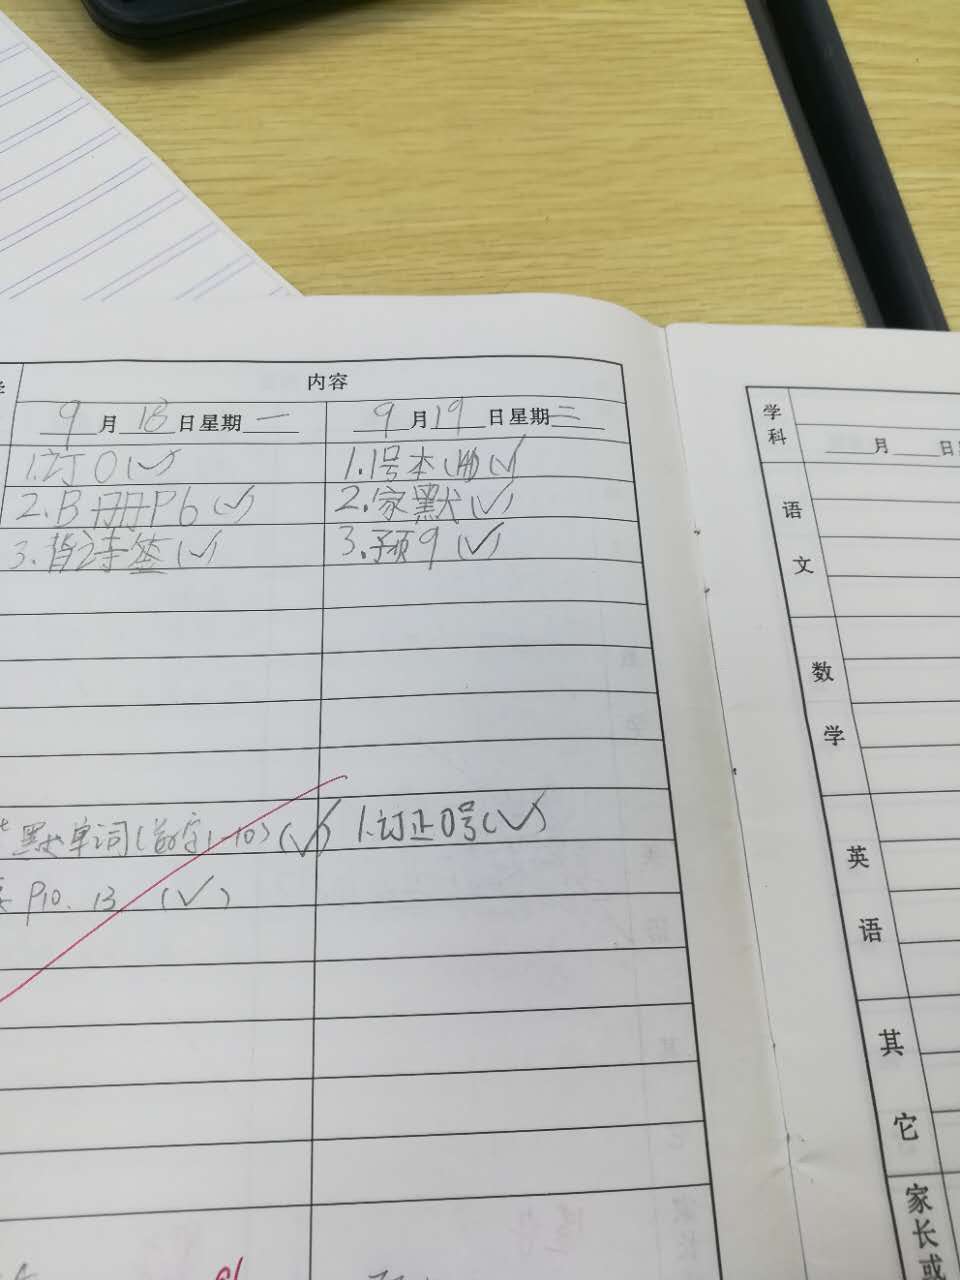 内容
9月18日星期一
9月19日星期二
1.订0(✓)
2.B册P6(✓)
3.背诗签(✓)
1.1号本(✓)
2.家默(✓)
3.预9(✓)
默单词(数字1-10)(✓)
P10.13 (✓)
1.订正0号(✓)
学科
月 日
语文
数学
英语
其它
家长或